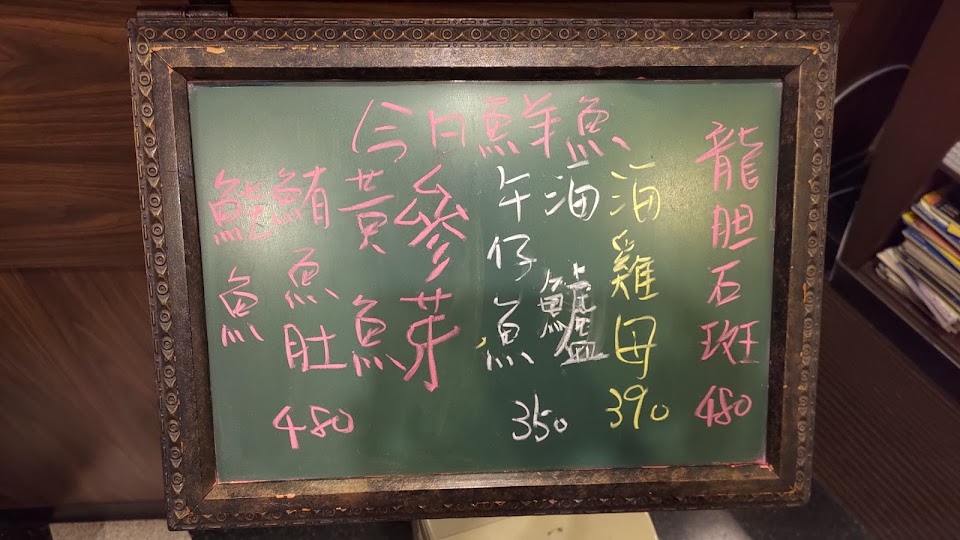 今日鮮魚
龍胆石斑
480
海雞母
390
海鱸
午仔魚
350
參芽
黃魚
鮪魚肚
480
鮭魚